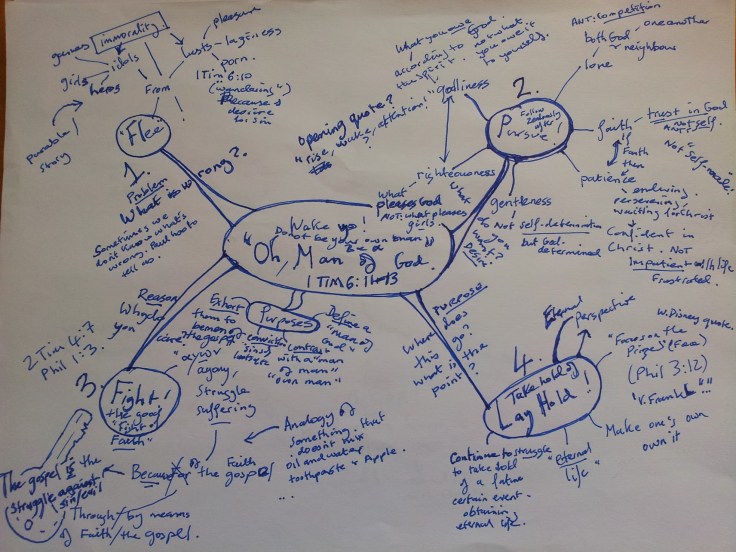 Wake up!
Do not be your own man
Be a
"Oh, Man of God
1 TIM 6:11-13
Purposes
Exhort
them to
be men of
the gospel
conviction
"sins"
contrast
with a "man
of man"
"own man"
Define a
"man of
God"
1.
"Flee"
From
immorality
idols
games
girls
heros
parable/
story
lusts - laziness
pleasure
porn.
1 Tim 6:10
("wandering")
Because of
desire
for sin
Problem
What is wrong?
Sometimes we
don't know what's
wrong. Paul has to
tell us.
opening quote?
"rise, wake, attention!"
2.
Pursue!
Follow
zealously
after
godliness
What you owe God
according to
the spirit. not what
you owe it
to yourself.
righteousness
What
pleases God
NOT: what pleases
girls
gentleness
Not self-determination
but God
determined
What
do you
desire?
love
both God
+ neighbour
one another
ANT: competition
faith
trust in God
not self
ANT:
Not "self-made"
Faith
then
patience
enduring,
persevering,
waiting for Christ
Confident in
Christ. NOT
impatient with life
Frustrated.
Reason
Why do
you
2 Tim 4:7
Phil 1:3
3.
Fight!
the good
"fight of
Faith"
agony,
struggle
suffering
Because of the Faith
the gospel
Analogy of
something that
doesn't mix
oil and water
toothpaste & Apple.
...
The gospel is the
struggle against
sin/evil
Through/by means
of Faith/the gospel.
PURPOSE
Where does
this go?
what is the
point?
4.
Take hold of
Lay Hold!
Eternal
perspective
W. Disney quote.
"Focus on the
Prize"
(Phil 3:12)
"V. Frankl"..."
Make one's own
own it
"Eternal
life"
Continue to struggle
to take hold
of a future
certain event.
obtaining
eternal life.